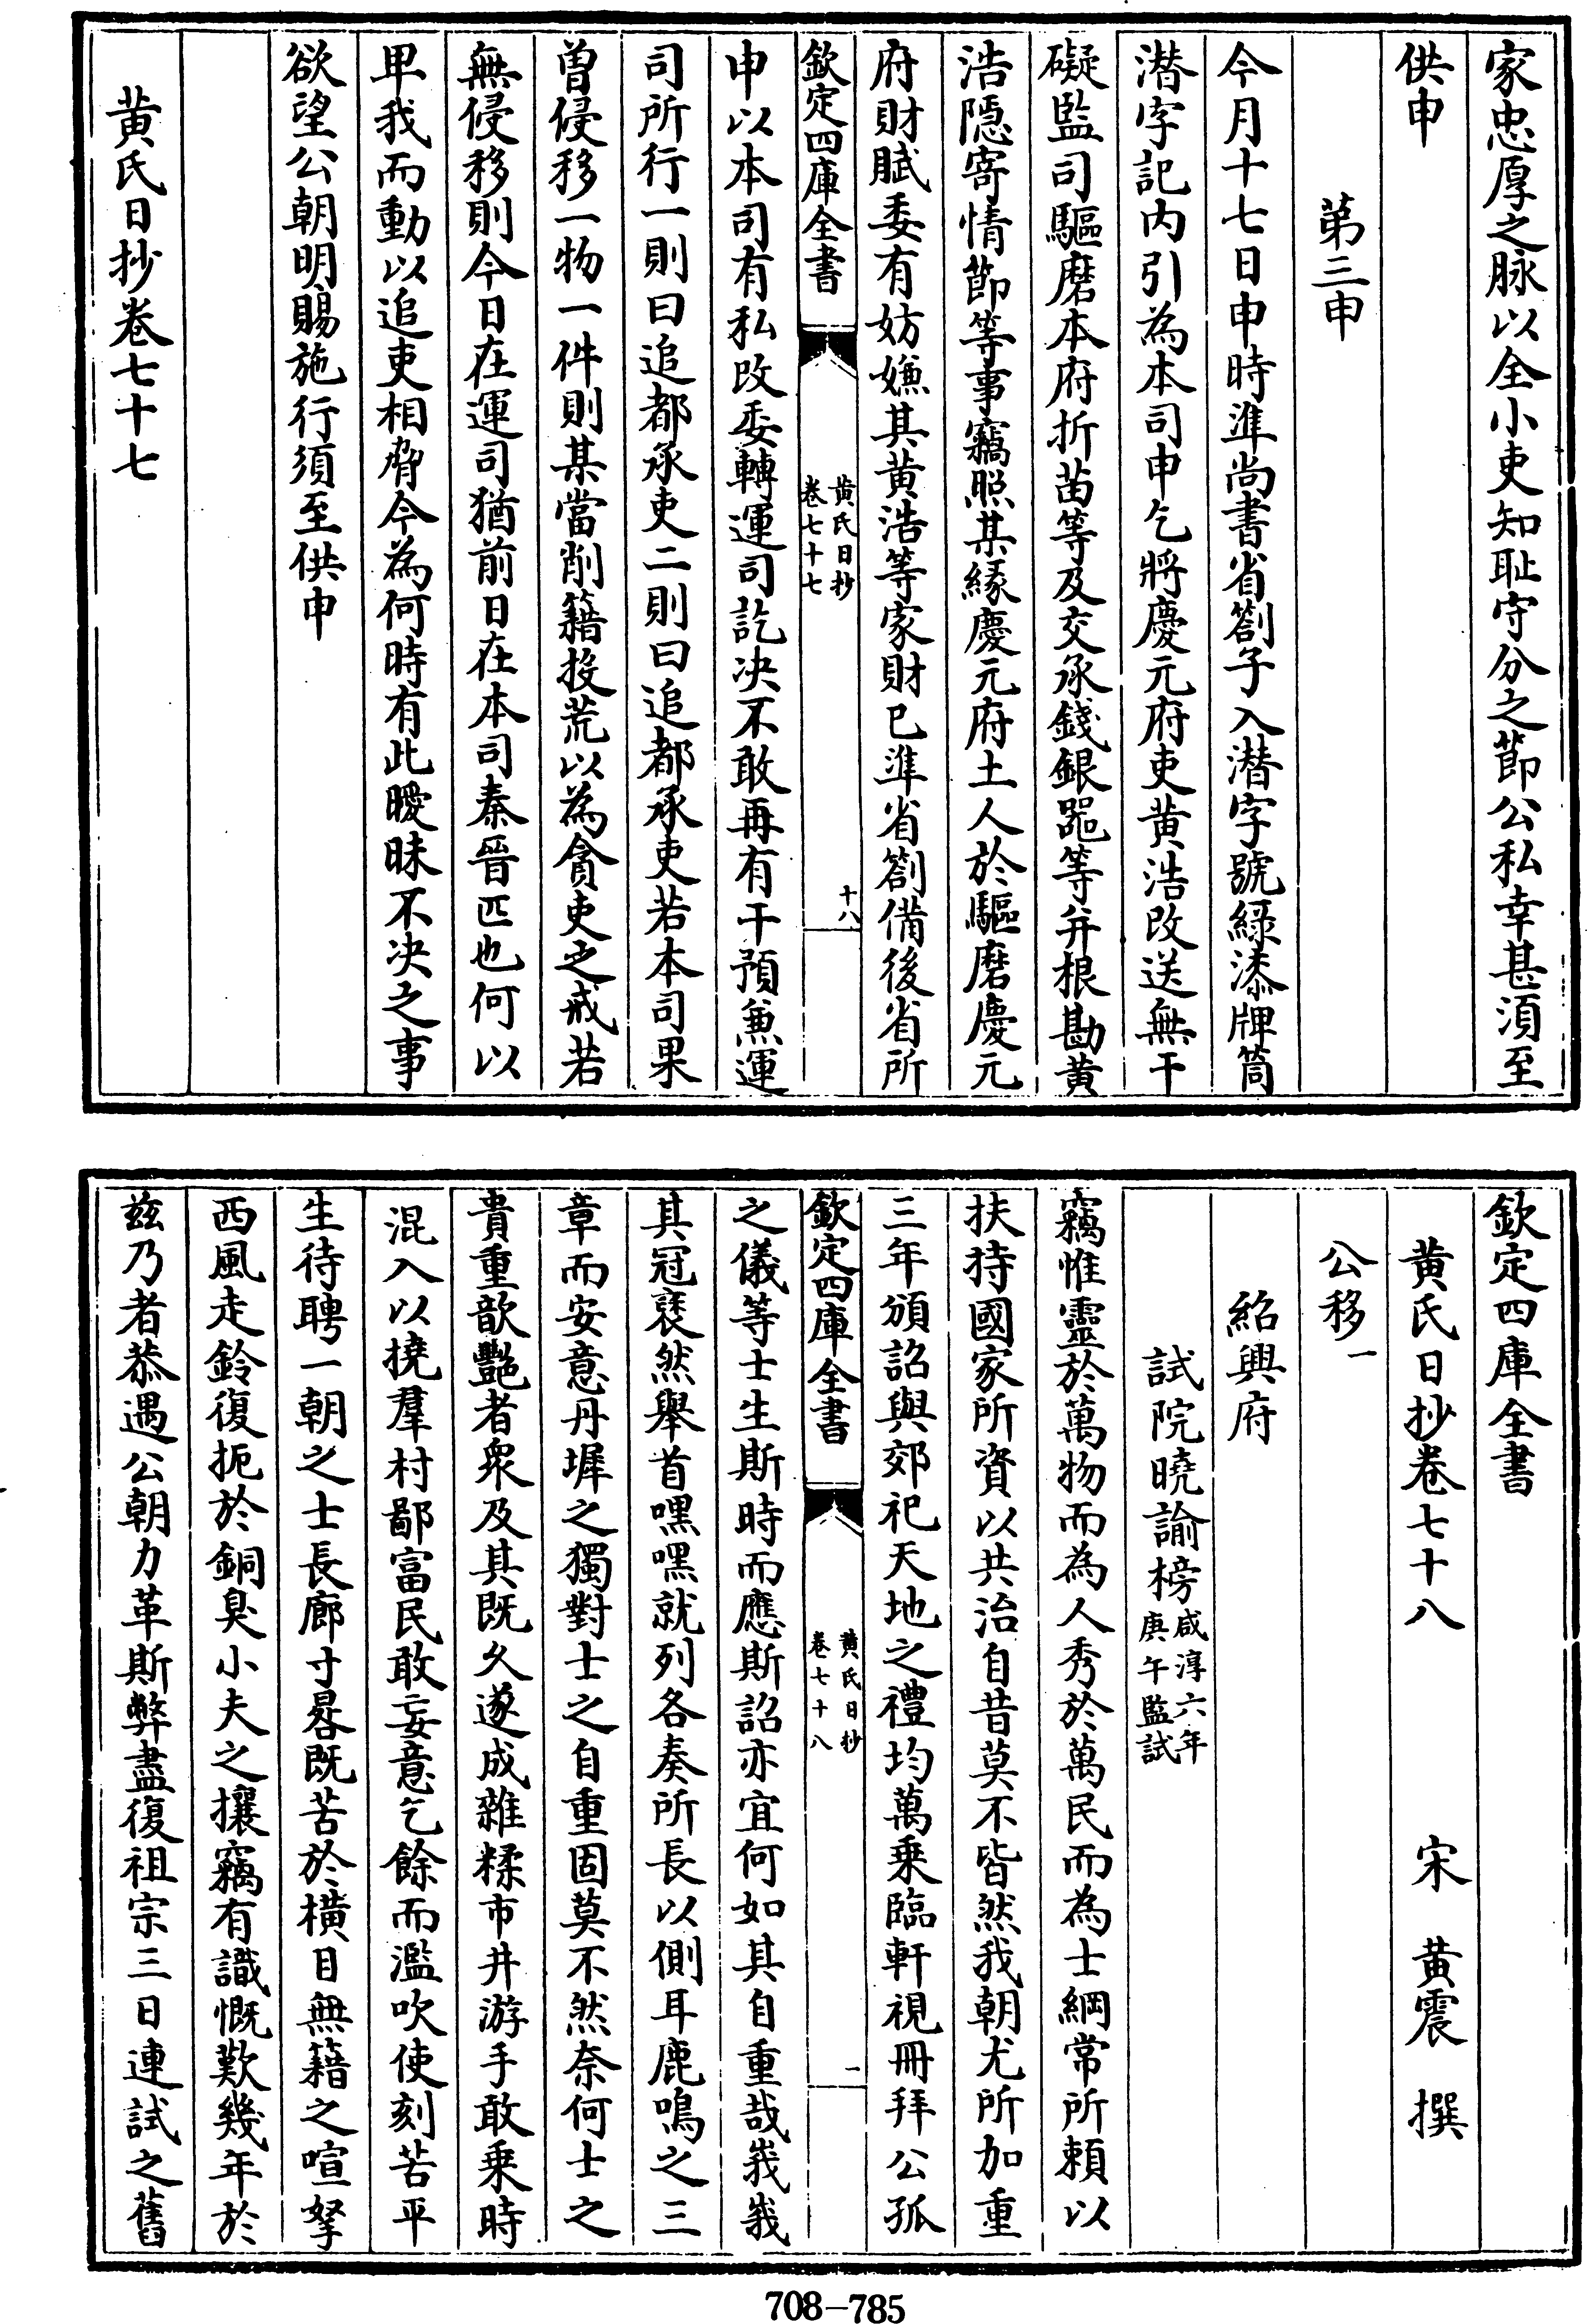 家忠厚之脉以全小吏知耻守分之節公私幸甚湏至
供申
第三申
今月十七日申時準尚書省劄子入濳字號緑漆牌筒
濳字記内引為本司申乞將慶元府吏黄浩改送無干
礙監司驅磨本府折苗等及交承錢銀噐等并根勘黄
浩隠寄情節等事竊照某緣慶元府土人於驅磨慶元
府財賦委有妨嫌其黄浩等家財已準省劄備後省所
欽定四庫全書
黄氏日抄
卷七十七
十八
申以本司有私改委轉運司訖决不敢再有干預兼運
司所行一則曰追都承吏二則曰追都承吏若本司果
曽侵移一物一件則某當削籍投荒以為貪吏之戒若
無侵移則今日在運司猶前日在本司秦晉匹也何以
卑我而動以追吏相脅今為何時有此曖昧不决之事
欲望公朝明賜施行須至供申
黄氏日抄卷七十七
欽定四庫全書
黄氏日抄卷七十八
宋 黄震 撰
公移一
紹興府
試院曉諭榜咸淳六年
庚午監試
竊惟靈於萬物而為人秀於萬民而為士綱常所頼以
扶持國家所資以共治自昔莫不皆然我朝尤所加重
三年頒詔與郊祀天地之禮均萬乗臨軒視冊拜公孤
欽定四庫全書
黄氏日抄
卷七十八
一
之儀等士生斯時而應斯詔亦宜何如其自重哉峩峩
其冠褎然舉首嘿嘿就列各奏所長以側耳鹿鳴之三
章而安意丹墀之獨對士之自重固莫不然奈何士之
貴重歆艷者衆及其既乆遂成雜糅市井游手敢乗時
混入以撓羣村鄙富民敢妄意乞餘而濫吹使刻苦平
生待聘一朝之士長廊寸晷既苦於横目無籍之喧拏
西風走鈴復扼於銅臭小夫之攘竊有識慨歎幾年於
兹乃者恭遇公朝力革斯弊盡復祖宗三日連試之舊
708-785